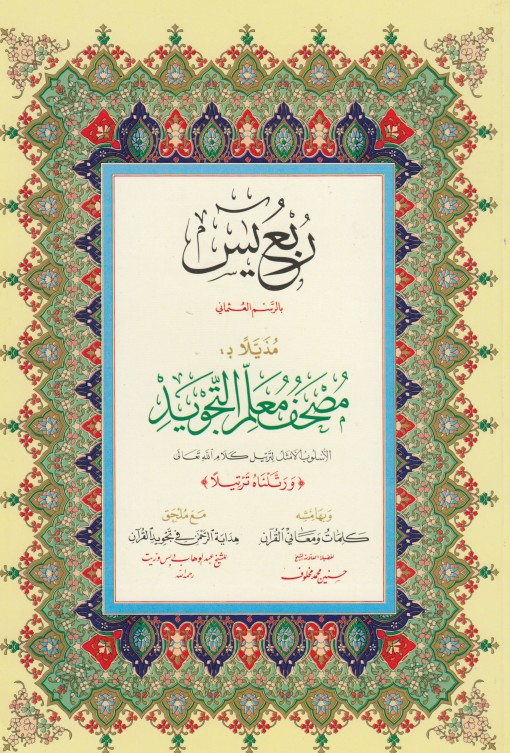 رُبْعُ يٰسٓ
بالرَّسم العُثماني
مُذَيَّلًا بـ:
مُصْحَفُ مُعَلِّمِ التَّجْوِيْدِ
الأسلوب الأمثل لترتيل كلام الله تعالى
﴿ وَرَتَّلْنَاهُ تَرْتِيلًا ﴾
وبهامشه
كلمات ومعاني القرآن
لفضيلة العلامة الشيخ
حسنين محمد مخلوف
مع ملحق
هداية الرحمن في تجويد القرآن
للشيخ عبد الوهاب دبس وزيت
رحمه الله